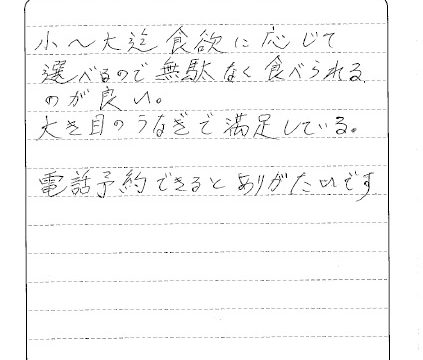 小〜大迄食欲に応じて
選べるので無駄なく食べられる
のが良い。
大き目のうなぎで満足している。
電話予約できるとありがたいです